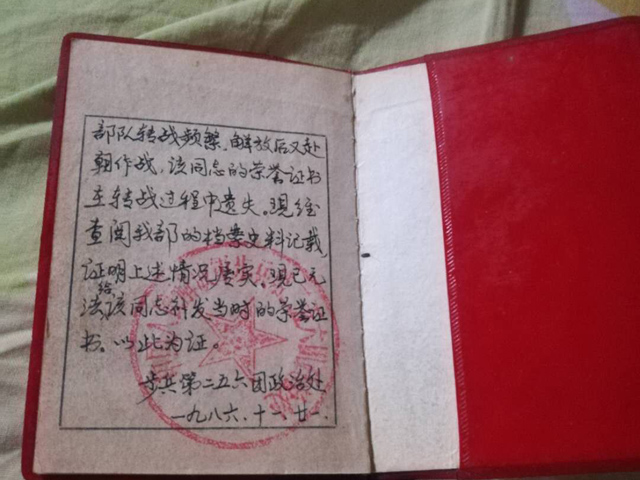 部队转战频繁,解放后又赴
朝作战,该同志的荣誉证书
在转战过程中遗失。现经
查阅我部的档案史料记载,
证明上述情况属实。现已无
法给该同志补发当时的荣誉证
书。以此为证。
步兵第二五六团政治处
一九八六.十一.廿一.